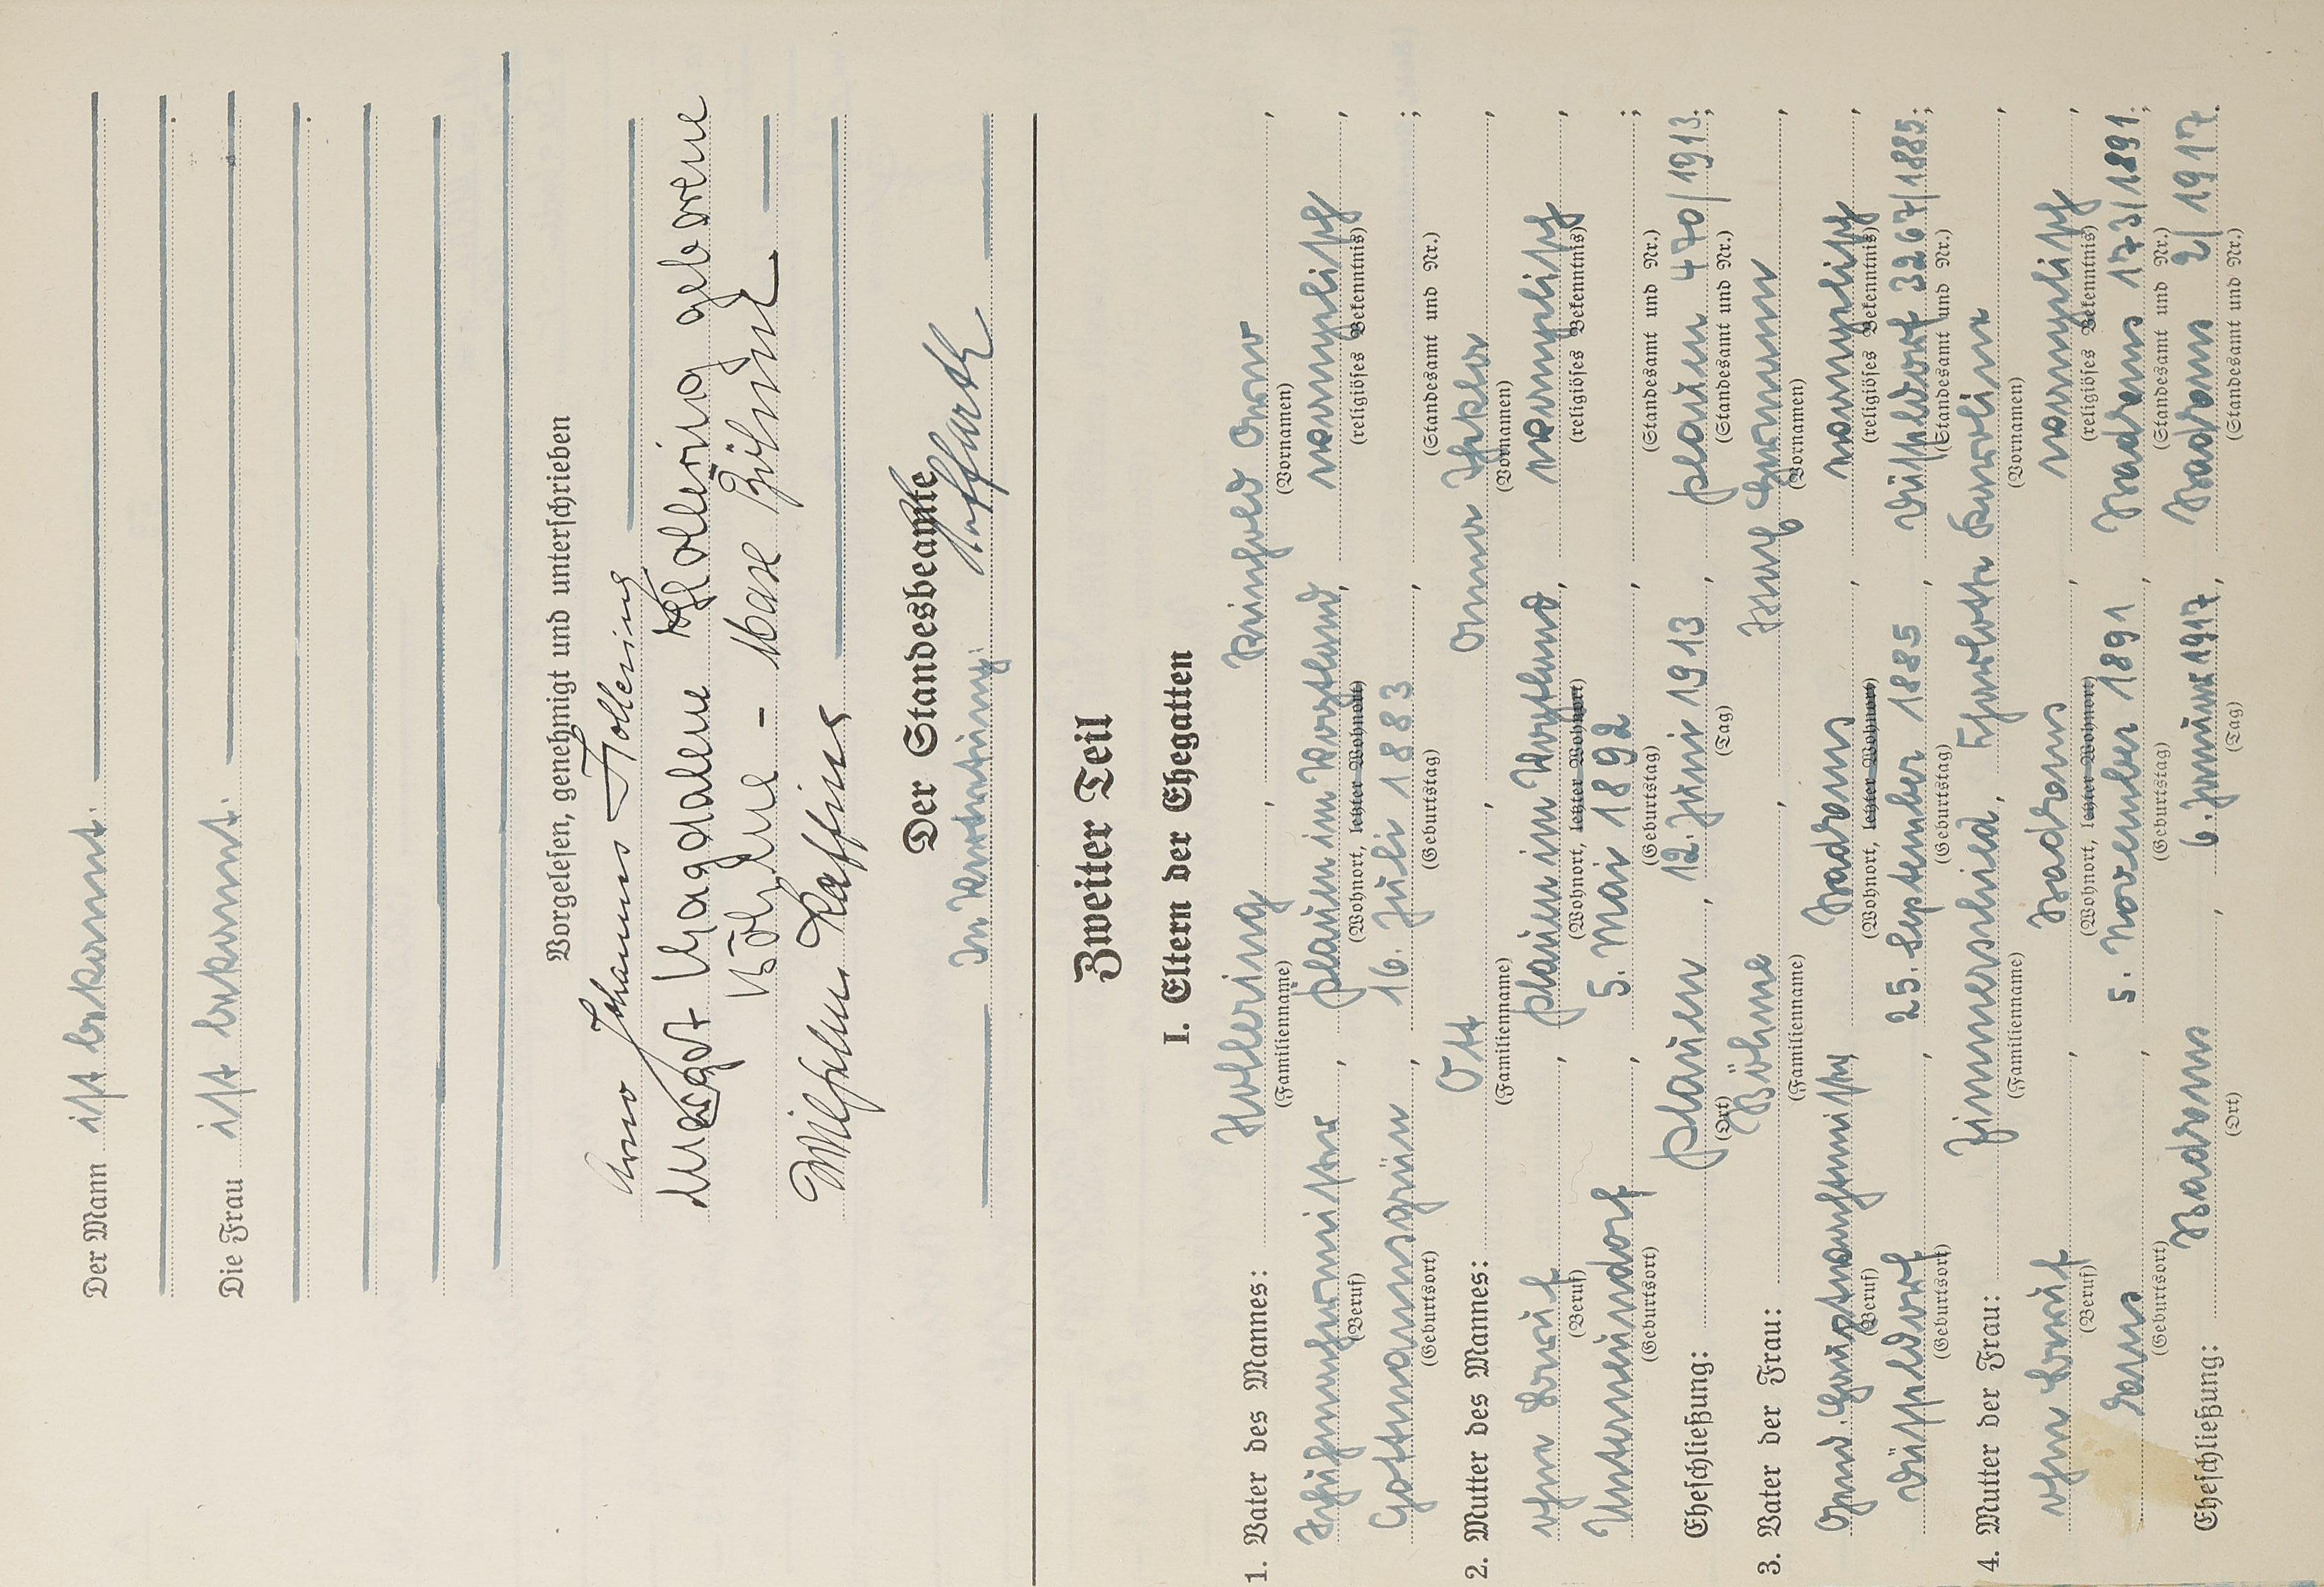 Der Mann ist bekannt.
Die Frau ist bekannt.
Vorgelesen, genehmigt und unterschrieben
Arno Johannes Hollering
Margot Magdalene Hollering geborene
Böhme - Max Böhme
Wilhelm
Der Standesbeamte
In Vertretung:
Zweiter Teil
I. Eltern der Ehegatten
1. Vater des Mannes: Hollering, Reinhold Arno,
(Familienname) (Vornamen)
Schuhmachermeister, Plauen im Vogtland, evangelisch
(Beruf) (Wohnort, letzter Wohnort) (religiöses Bekenntnis)
Gottmannsgrün, 16. Juli 1883, ;
(Geburtsort) (Geburtstag) (Standesamt und Nr.)
2. Mutter des Mannes: Ott, Anna Thekla,
(Familienname) (Vornamen)
ohne Beruf, Plauen im Vogtland, evangelisch,
(Beruf) (Wohnort, letzter Wohnort) (religiöses Bekenntnis)
Unterneundorf, 5. Mai 1892, ;
(Geburtsort) (Geburtstag) (Standesamt und Nr.)
Eheschließung: Plauen, 12. Juni 1913, Plauen 470/1913;
(Ort) (Tag) (Standesamt und Nr.)
3. Vater der Frau: Böhme, Hermann,
(Familienname) (Vornamen)
Wohnort, Barmen, evangelisch,
(Beruf) (Wohnort, letzter Wohnort) (religiöses Bekenntnis)
Düsseldorf, 25. September 1885, Düsseldorf 3267/1885;
(Geburtsort) (Geburtstag) (Standesamt und Nr.)
4. Mutter der Frau: Zimmerschied, Charlotte Karoline,
(Familienname) (Vornamen)
ohne Beruf, evangelisch,
(Beruf) (Wohnort, letzter Wohnort) (religiöses Bekenntnis)
5. November 1891, 173/1891;
(Geburtsort) (Geburtstag) (Standesamt und Nr.)
Eheschließung: 6. Januar 1917, 2/1917.
(Ort) (Tag) (Standesamt und Nr.)